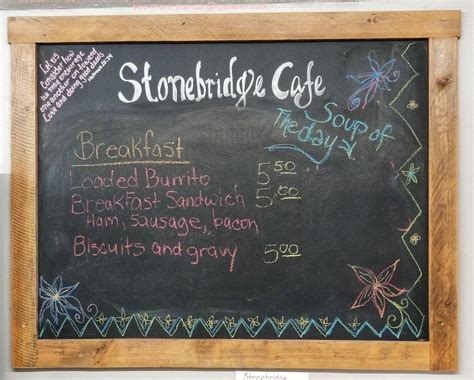 Let us
consider how
we may encourage
one another on toward
Love and doing good deeds
Hebrews 10:24
Stonebridge Cafe
Soup of
The day
Breakfast
Loaded Burrito 5.50
Breakfast Sandwich 5.00
Ham, sausage, bacon
Biscuits and gravy 5.00